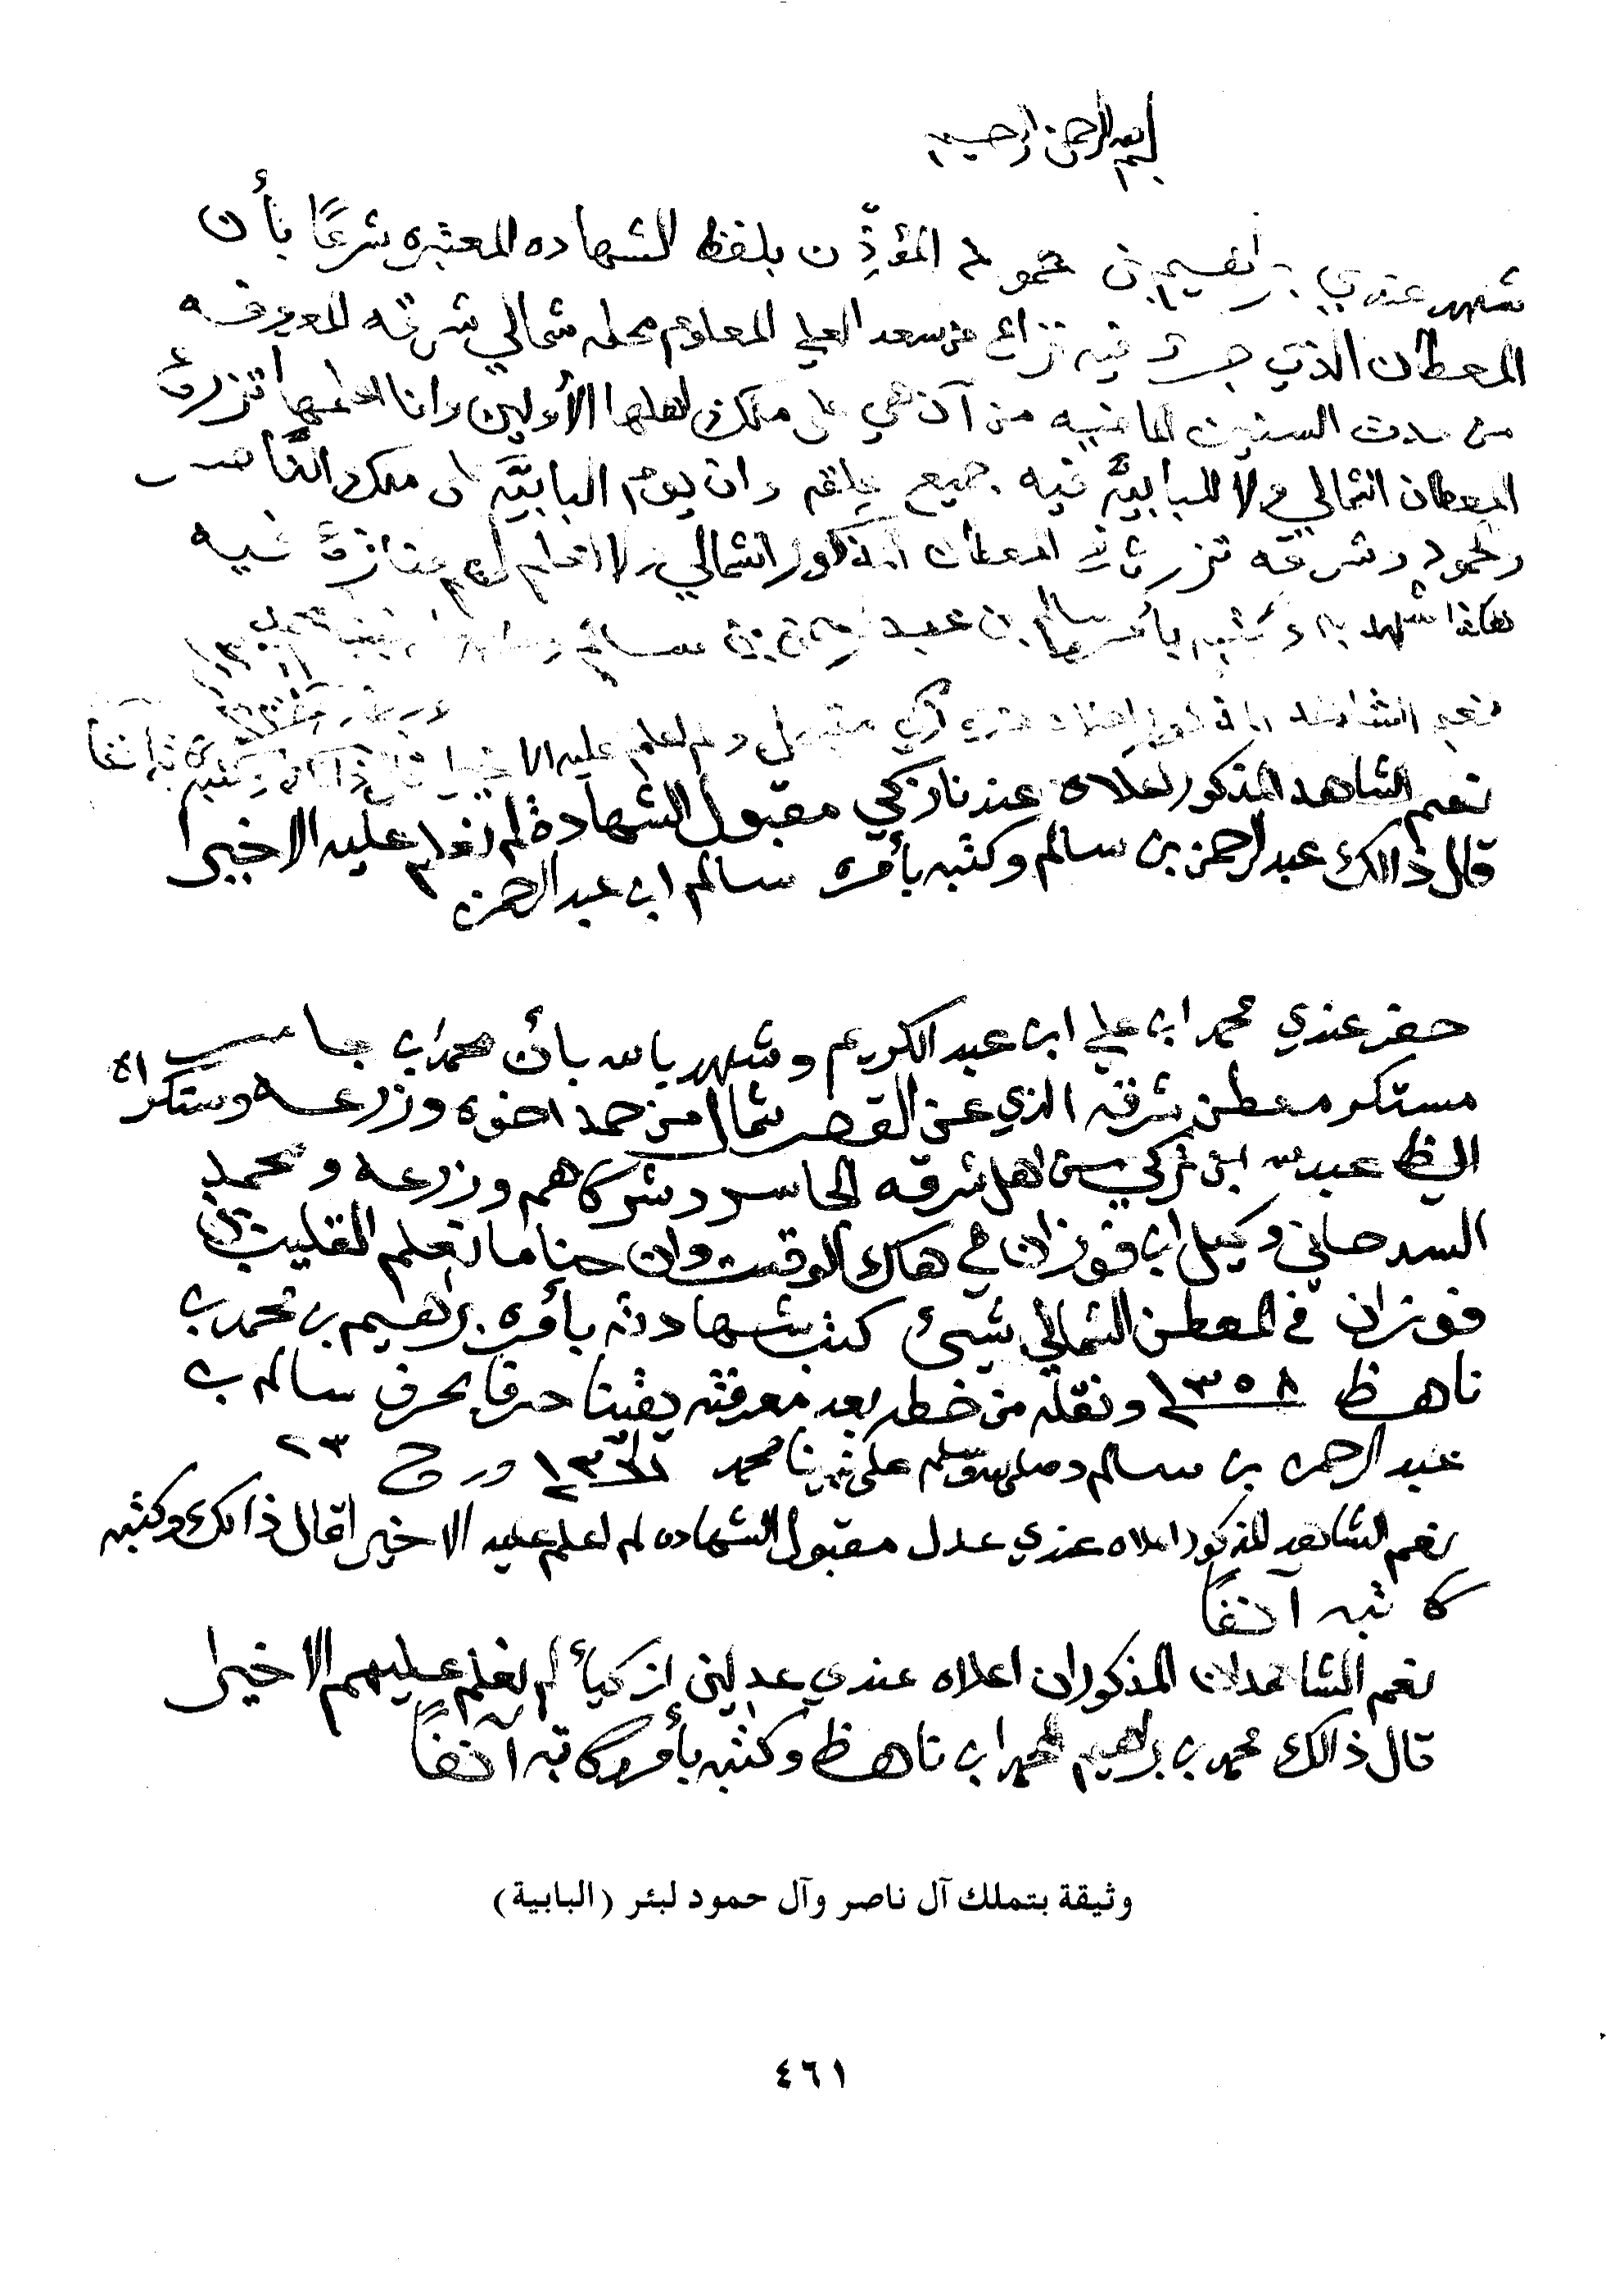 بسم الله الرحمن الرحيم
شهد عندي براهيم بن حمود المؤذِّن بلفظ الشهاده المعتبره شرعًا بأن
المعطان الذي جرى فيه نزاع من سعد العلي المعلوم محله شمالي شرقه المعروفه
من مدت السنين الماضيه من آن هي على ملك اهلها الأولين وانا اعلمها تزرع
المعطان الشمالي ولا للبابيَّه فيه جميع علقه وان يوم البابيَّه على ملك النَّاصر
والحمود وشرقه تزرع المعطان المذكور الشمالي ولا اعلم لهم منازع فيه
هكذا شهد به وكتبه بأمره سالم بن عبد الرحمن بن سالم
نعم الشاهد المذكور اعلاه عندي زكي مقبول ولم اعلم عليه الا خيرا قال ذالك وكتبه كاتبه آنفا
نعم الشاهد المذكور اعلاه عندنا زكي مقبول الشهادة لم نعلم عليه الا خيرا
قال ذالك عبد الرحمن بن سالم وكتبه بأمره سالم ابن عبد الرحمن
حضر عندي محمد ابن علي ابن عبد الكريم وشهد بالله بأن محمد ابن جاسر
مستكر معطن شرقه الذي عن القصر شمال من حمد اخوه وزرعه وستكراه
ايظ عبد الله ابن تركي من اهل شرقه الجاسر وشركاهم وزرعه ومحمد
السدحاني وكيل ابن فوزان في هاك الوقت وان حنا ما نعلم القليب ابن
فوزان في المعطن الشمالي شيئ كتب شهادته بأمره براهيم بن محمد بن
ناهظ ١٣٥٨ ونقله من خطه بعد معرفته يقينا حرفا بحرف سالم بن
عبد الرحمن بن سالم وصلى الله وسلم على نبينا محمد ور ح ٢٣
نعم الشاهد المذكور اعلاه عندي عدل مقبول الشهاده لم اعلم عليه الا خيرا قال ذالك وكتبه
كاتبه آنفًا
نعم الشاهدان المذكوران اعلاه عندي عدلين ازكيأ لم نعلم عليهم الا خيرا
قال ذالك محمد بن براهيم المحمد ابن ناهظ وكتبه بأمره كاتبه آنفًا
وثيقة بتملك آل ناصر وآل حمود لبئر (البابية)
٤٦١